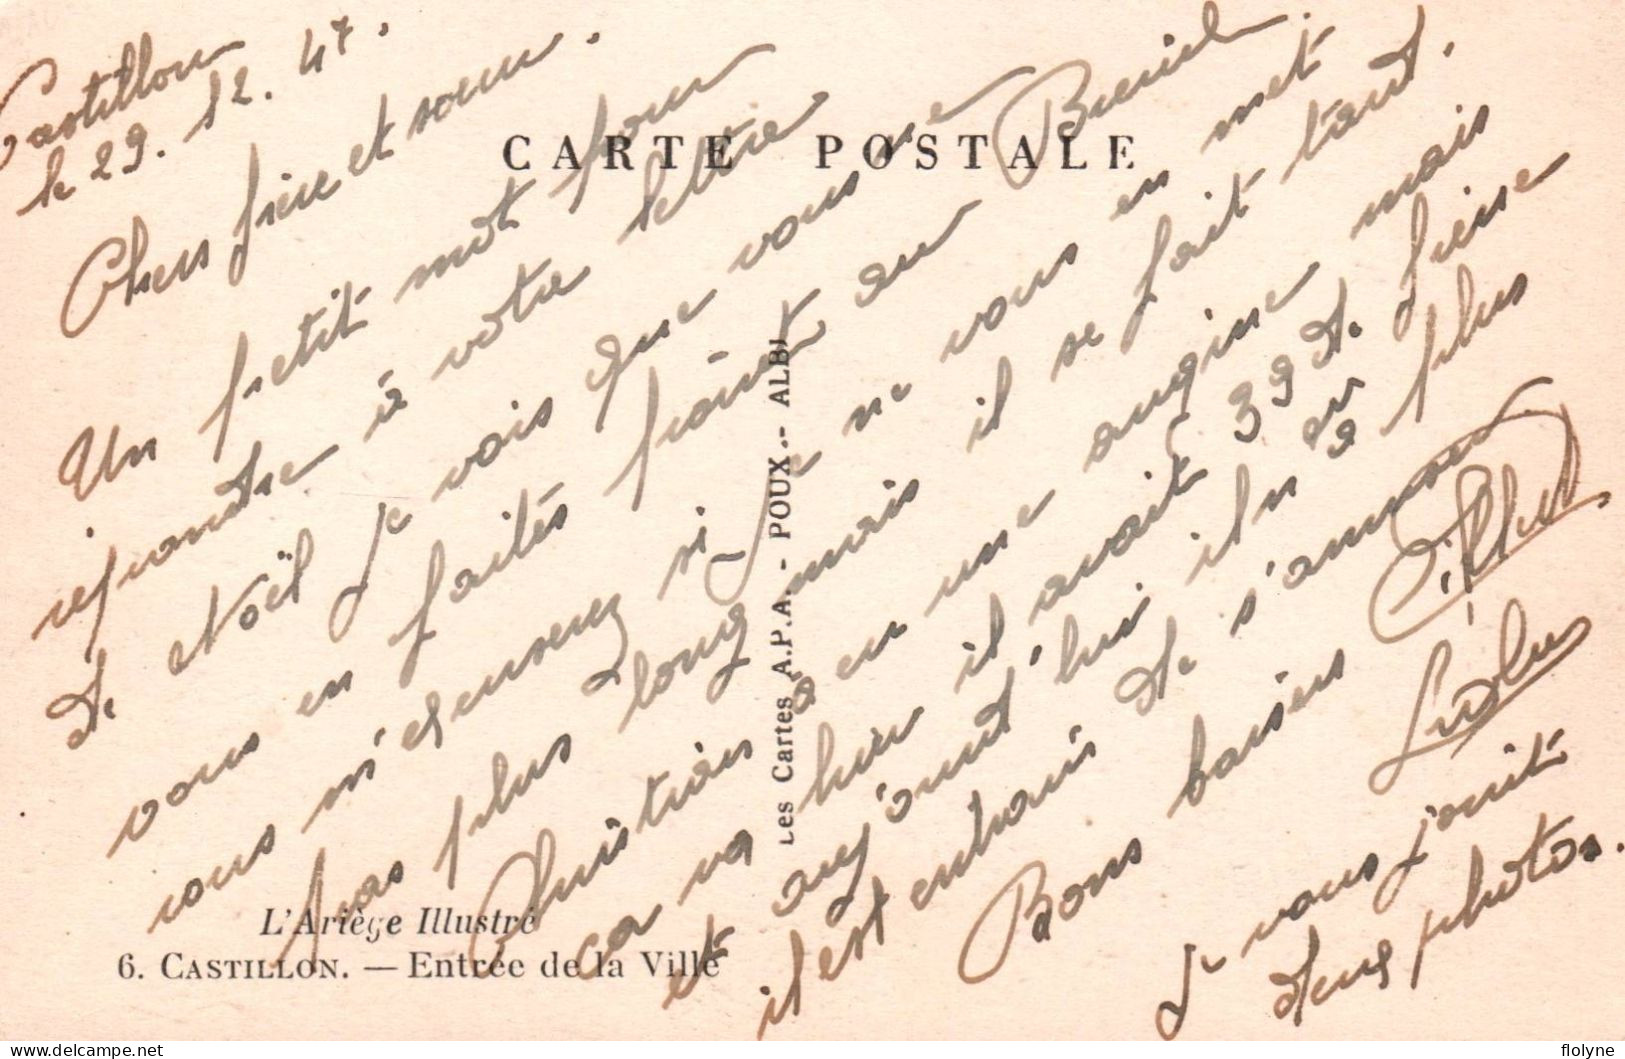 Castillon
le 29. 12. 47.
Chers frère et soeur.
CARTE POSTALE
Un petit mot pour
répondre à votre lettre
de Noël je vois que vous ne
vous en faites pas au
vous m'excuserez si je ne vous en met
pas plus long mais il se fait tard.
Christian a eu une angine mais
ça va hier il avait 39 de fièvre
et aujourd'hui il n'en a plus
il est entrain de s'amuser
Bons baisers
Je vous joint
deux photos.
Les Cartes A.P.A. - POUX. - ALBI
L'Ariège Illustré
6. CASTILLON. — Entrée de la Ville
delcampe.net
flolyne